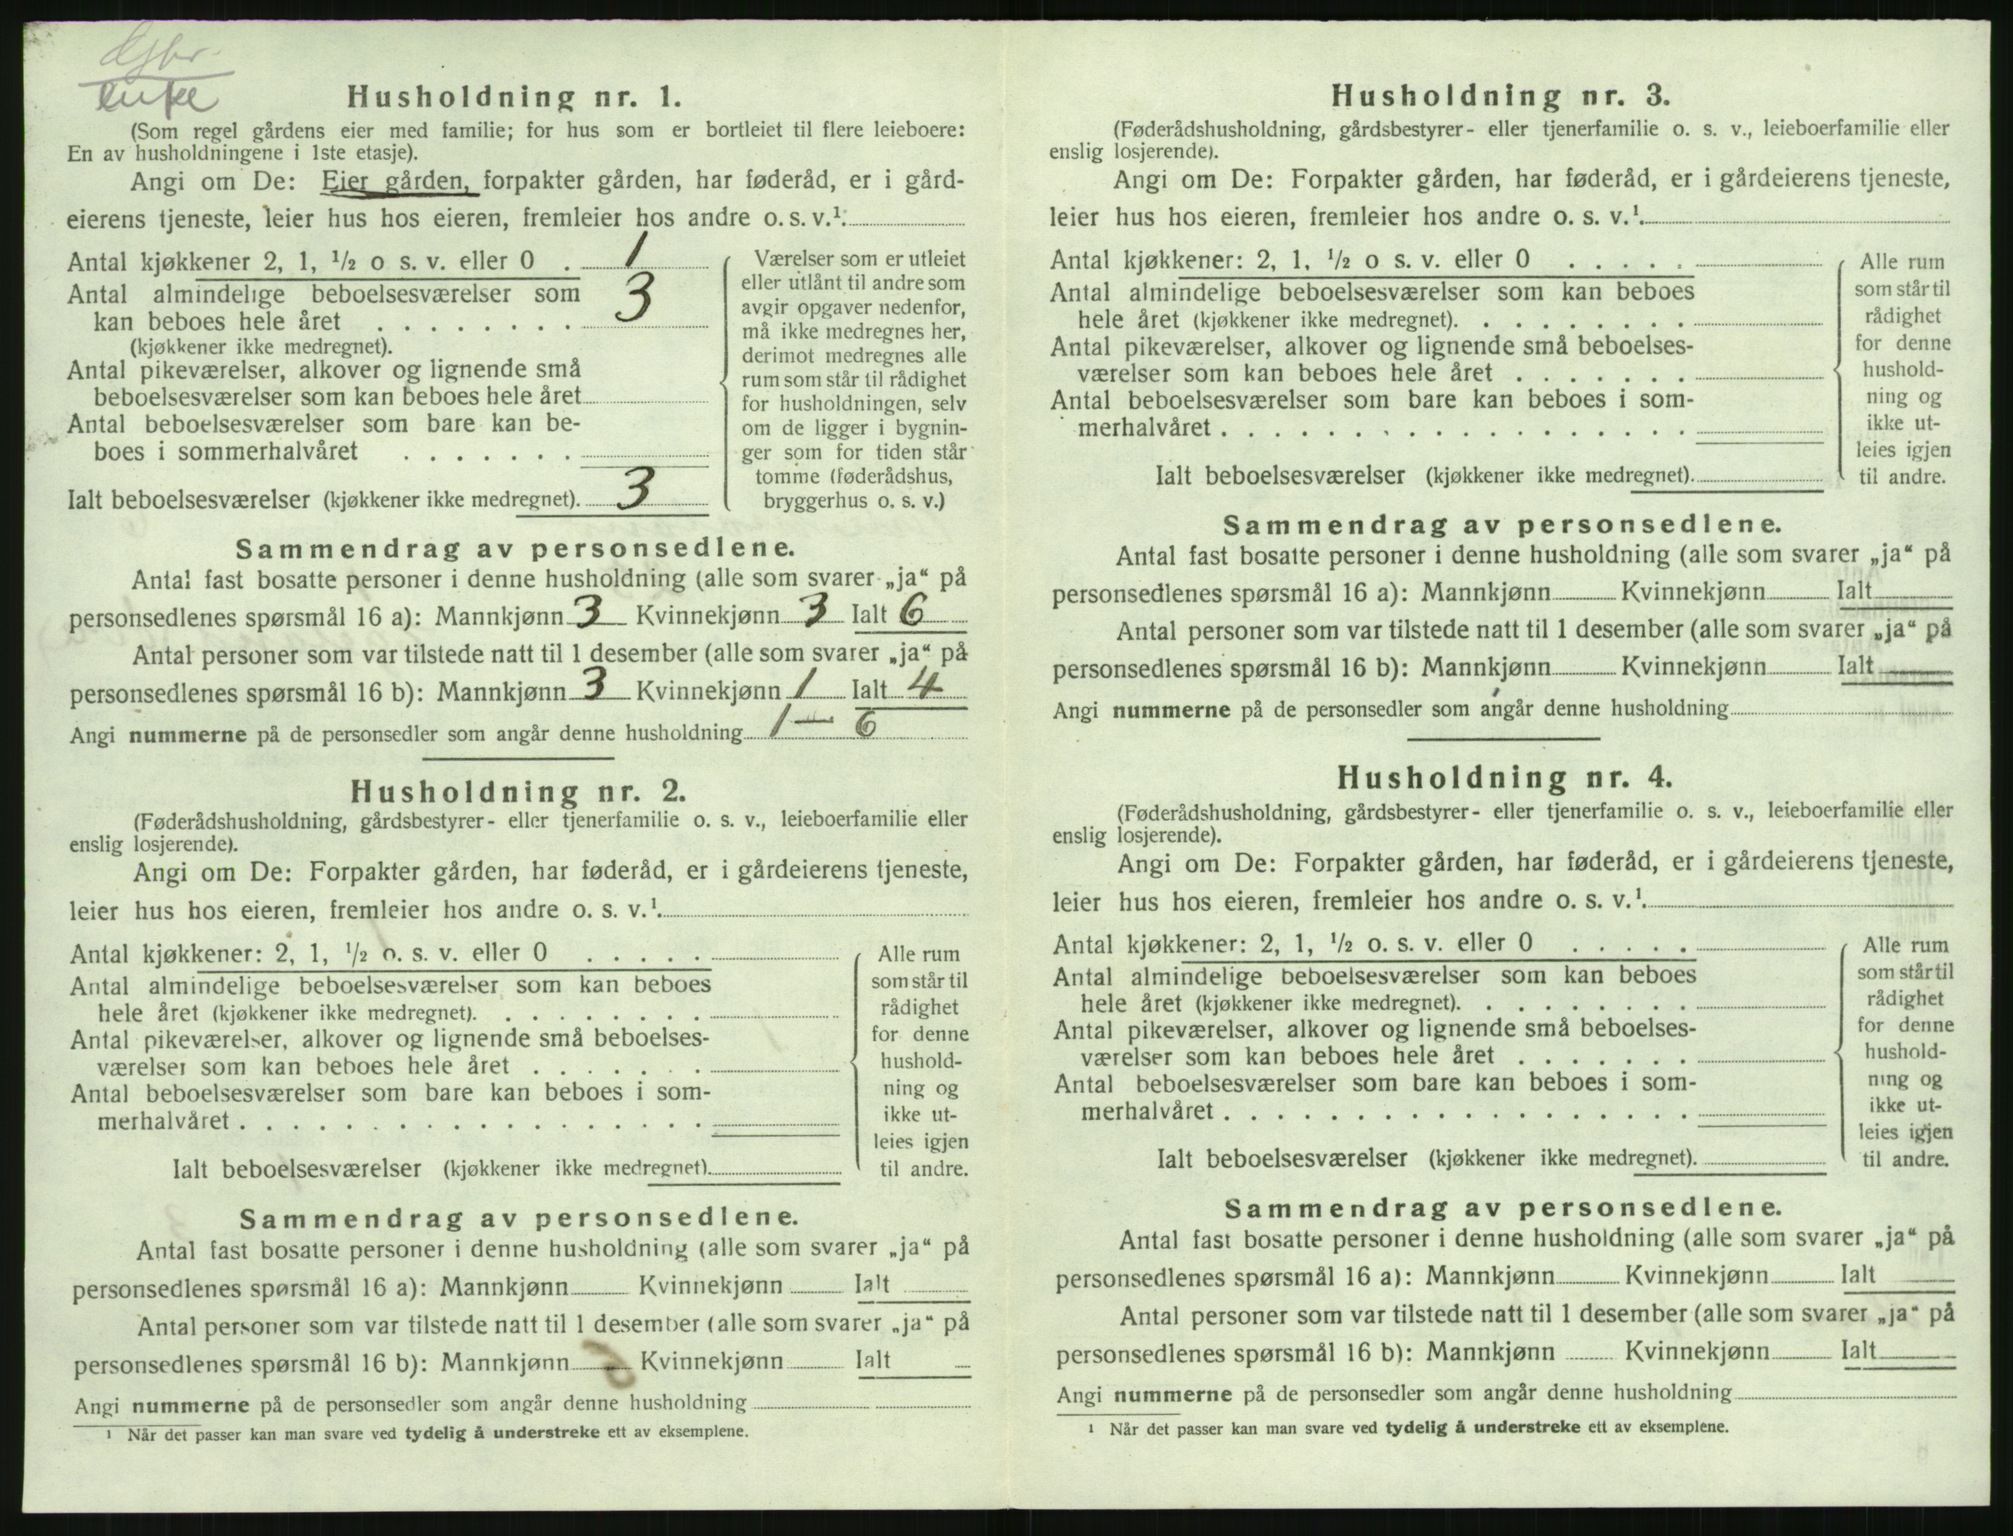 Gjbr
enke
Husholdning nr. 1.
(Som regel gårdens eier med familie; for hus som er bortleiet til flere leieboere:
En av husholdningene i 1ste etasje).
Angi om De: Eier gården, forpakter gården, har føderåd, er i gård-
eierens tjeneste, leier hus hos eieren, fremleier hos andre o. s. v.¹.
Antal kjøkkener 2, 1, ½ o s. v. eller 0 . 1
Antal almindelige beboelsesværelser som
kan beboes hele året . . . . . . . . 3
(kjøkkener ikke medregnet).
Antal pikeværelser, alkover og lignende små
beboelsesværelser som kan beboes hele året
Antal beboelsesværelser som bare kan be-
boes i sommerhalvåret . . . . . . .
Ialt beboelsesværelser (kjøkkener ikke medregnet). 3
Værelser som er utleiet
eller utlånt til andre som
avgir opgaver nedenfor,
må ikke medregnes her,
derimot medregnes alle
rum som står til rådighet
for husholdningen, selv
om de ligger i bygnin-
ger som for tiden står
tomme (føderådshus,
bryggerhus o. s. v.)
Sammendrag av personsedlene.
Antal fast bosatte personer i denne husholdning (alle som svarer „ja“ på
personsedlenes spørsmål 16 a): Mannkjønn 3 Kvinnekjønn 3 Ialt 6
Antal personer som var tilstede natt til 1 desember (alle som svarer „ja“ på
personsedlenes spørsmål 16 b): Mannkjønn 3 Kvinnekjønn 1 Ialt 4
Angi nummerne på de personsedler som angår denne husholdning 1 — 6
Husholdning nr. 2.
(Føderådshusholdning, gårdsbestyrer- eller tjenerfamilie o. s. v., leieboerfamilie eller
enslig losjerende).
Angi om De: Forpakter gården, har føderåd, er i gårdeierens tjeneste,
leier hus hos eieren, fremleier hos andre o. s. v.¹.
Antal kjøkkener: 2, 1, ½ o. s. v. eller 0 . . . . .
Antal almindelige beboelsesværelser som kan beboes
hele året (kjøkkener ikke medregnet). . . . . . . . .
Antal pikeværelser, alkover og lignende små beboelses-
værelser som kan beboes hele året . . . . . . .
Antal beboelsesværelser som bare kan beboes i som-
merhalvåret . . . . . . . . . . . . . . . . . .
Ialt beboelsesværelser (kjøkkener ikke medregnet).
Alle rum
som står til
rådighet
for denne
hushold-
ning og
ikke ut-
leies igjen
til andre.
Sammendrag av personsedlene.
Antal fast bosatte personer i denne husholdning (alle som svarer „ja“ på
personsedlenes spørsmål 16 a): Mannkjønn Kvinnekjønn Ialt
Antal personer som var tilstede natt til 1 desember (alle som svarer „ja“ på
personsedlenes spørsmål 16 b): Mannkjønn Kvinnekjønn Ialt
Angi nummerne på de personsedler som angår denne husholdning
¹ Når det passer kan man svare ved tydelig å understreke ett av eksemplene.
Husholdning nr. 3.
(Føderådshusholdning, gårdsbestyrer- eller tjenerfamilie o. s. v., leieboerfamilie eller
enslig losjerende).
Angi om De: Forpakter gården, har føderåd, er i gårdeierens tjeneste,
leier hus hos eieren, fremleier hos andre o. s. v.¹.
Antal kjøkkener: 2, 1, ½ o s. v. eller 0 . . . . .
Antal almindelige beboelsesværelser som kan beboes
hele året (kjøkkener ikke medregnet). . . . . . . . .
Antal pikeværelser, alkover og lignende små beboelses-
værelser som kan beboes hele året . . . . . . .
Antal beboelsesværelser som bare kan beboes i som-
merhalvåret . . . . . . . . . . . . . . . . . .
Ialt beboelsesværelser (kjøkkener ikke medregnet).
Alle rum
som står til
rådighet
for denne
hushold-
ning og
ikke ut-
leies igjen
til andre.
Sammendrag av personsedlene.
Antal fast bosatte personer i denne husholdning (alle som svarer „ja“ på
personsedlenes spørsmål 16 a): Mannkjønn Kvinnekjønn Ialt
Antal personer som var tilstede natt til 1 desember (alle som svarer „ja“ på
personsedlenes spørsmål 16 b): Mannkjønn Kvinnekjønn Ialt
Angi nummerne på de personsedler som angår denne husholdning
Husholdning nr. 4.
(Føderådshusholdning, gårdsbestyrer- eller tjenerfamilie o. s. v., leieboerfamilie eller
enslig losjerende).
Angi om De: Forpakter gården, har føderåd, er i gårdeierens tjeneste,
leier hus hos eieren, fremleier hos andre o. s. v.¹.
Antal kjøkkener: 2, 1, ½ o. s. v. eller 0 . . . . .
Antal almindelige beboelsesværelser som kan beboes
hele året (kjøkkener ikke medregnet). . . . . . . . .
Antal pikeværelser, alkover og lignende små beboelses-
værelser som kan beboes hele året . . . . . . .
Antal beboelsesværelser som bare kan beboes i som-
merhalvåret . . . . . . . . . . . . . . . . . .
Ialt beboelsesværelser (kjøkkener ikke medregnet).
Alle rum
som står til
rådighet
for denne
hushold-
ning og
ikke ut-
leies igjen
til andre.
Sammendrag av personsedlene.
Antal fast bosatte personer i denne husholdning (alle som svarer „ja“ på
personsedlenes spørsmål 16 a): Mannkjønn Kvinnekjønn Ialt
Antal personer som var tilstede natt til 1 desember (alle som svarer „ja“ på
personsedlenes spørsmål 16 b): Mannkjønn Kvinnekjønn Ialt
Angi nummerne på de personsedler som angår denne husholdning
¹ Når det passer kan man svare ved tydelig å understreke ett av eksemplene.